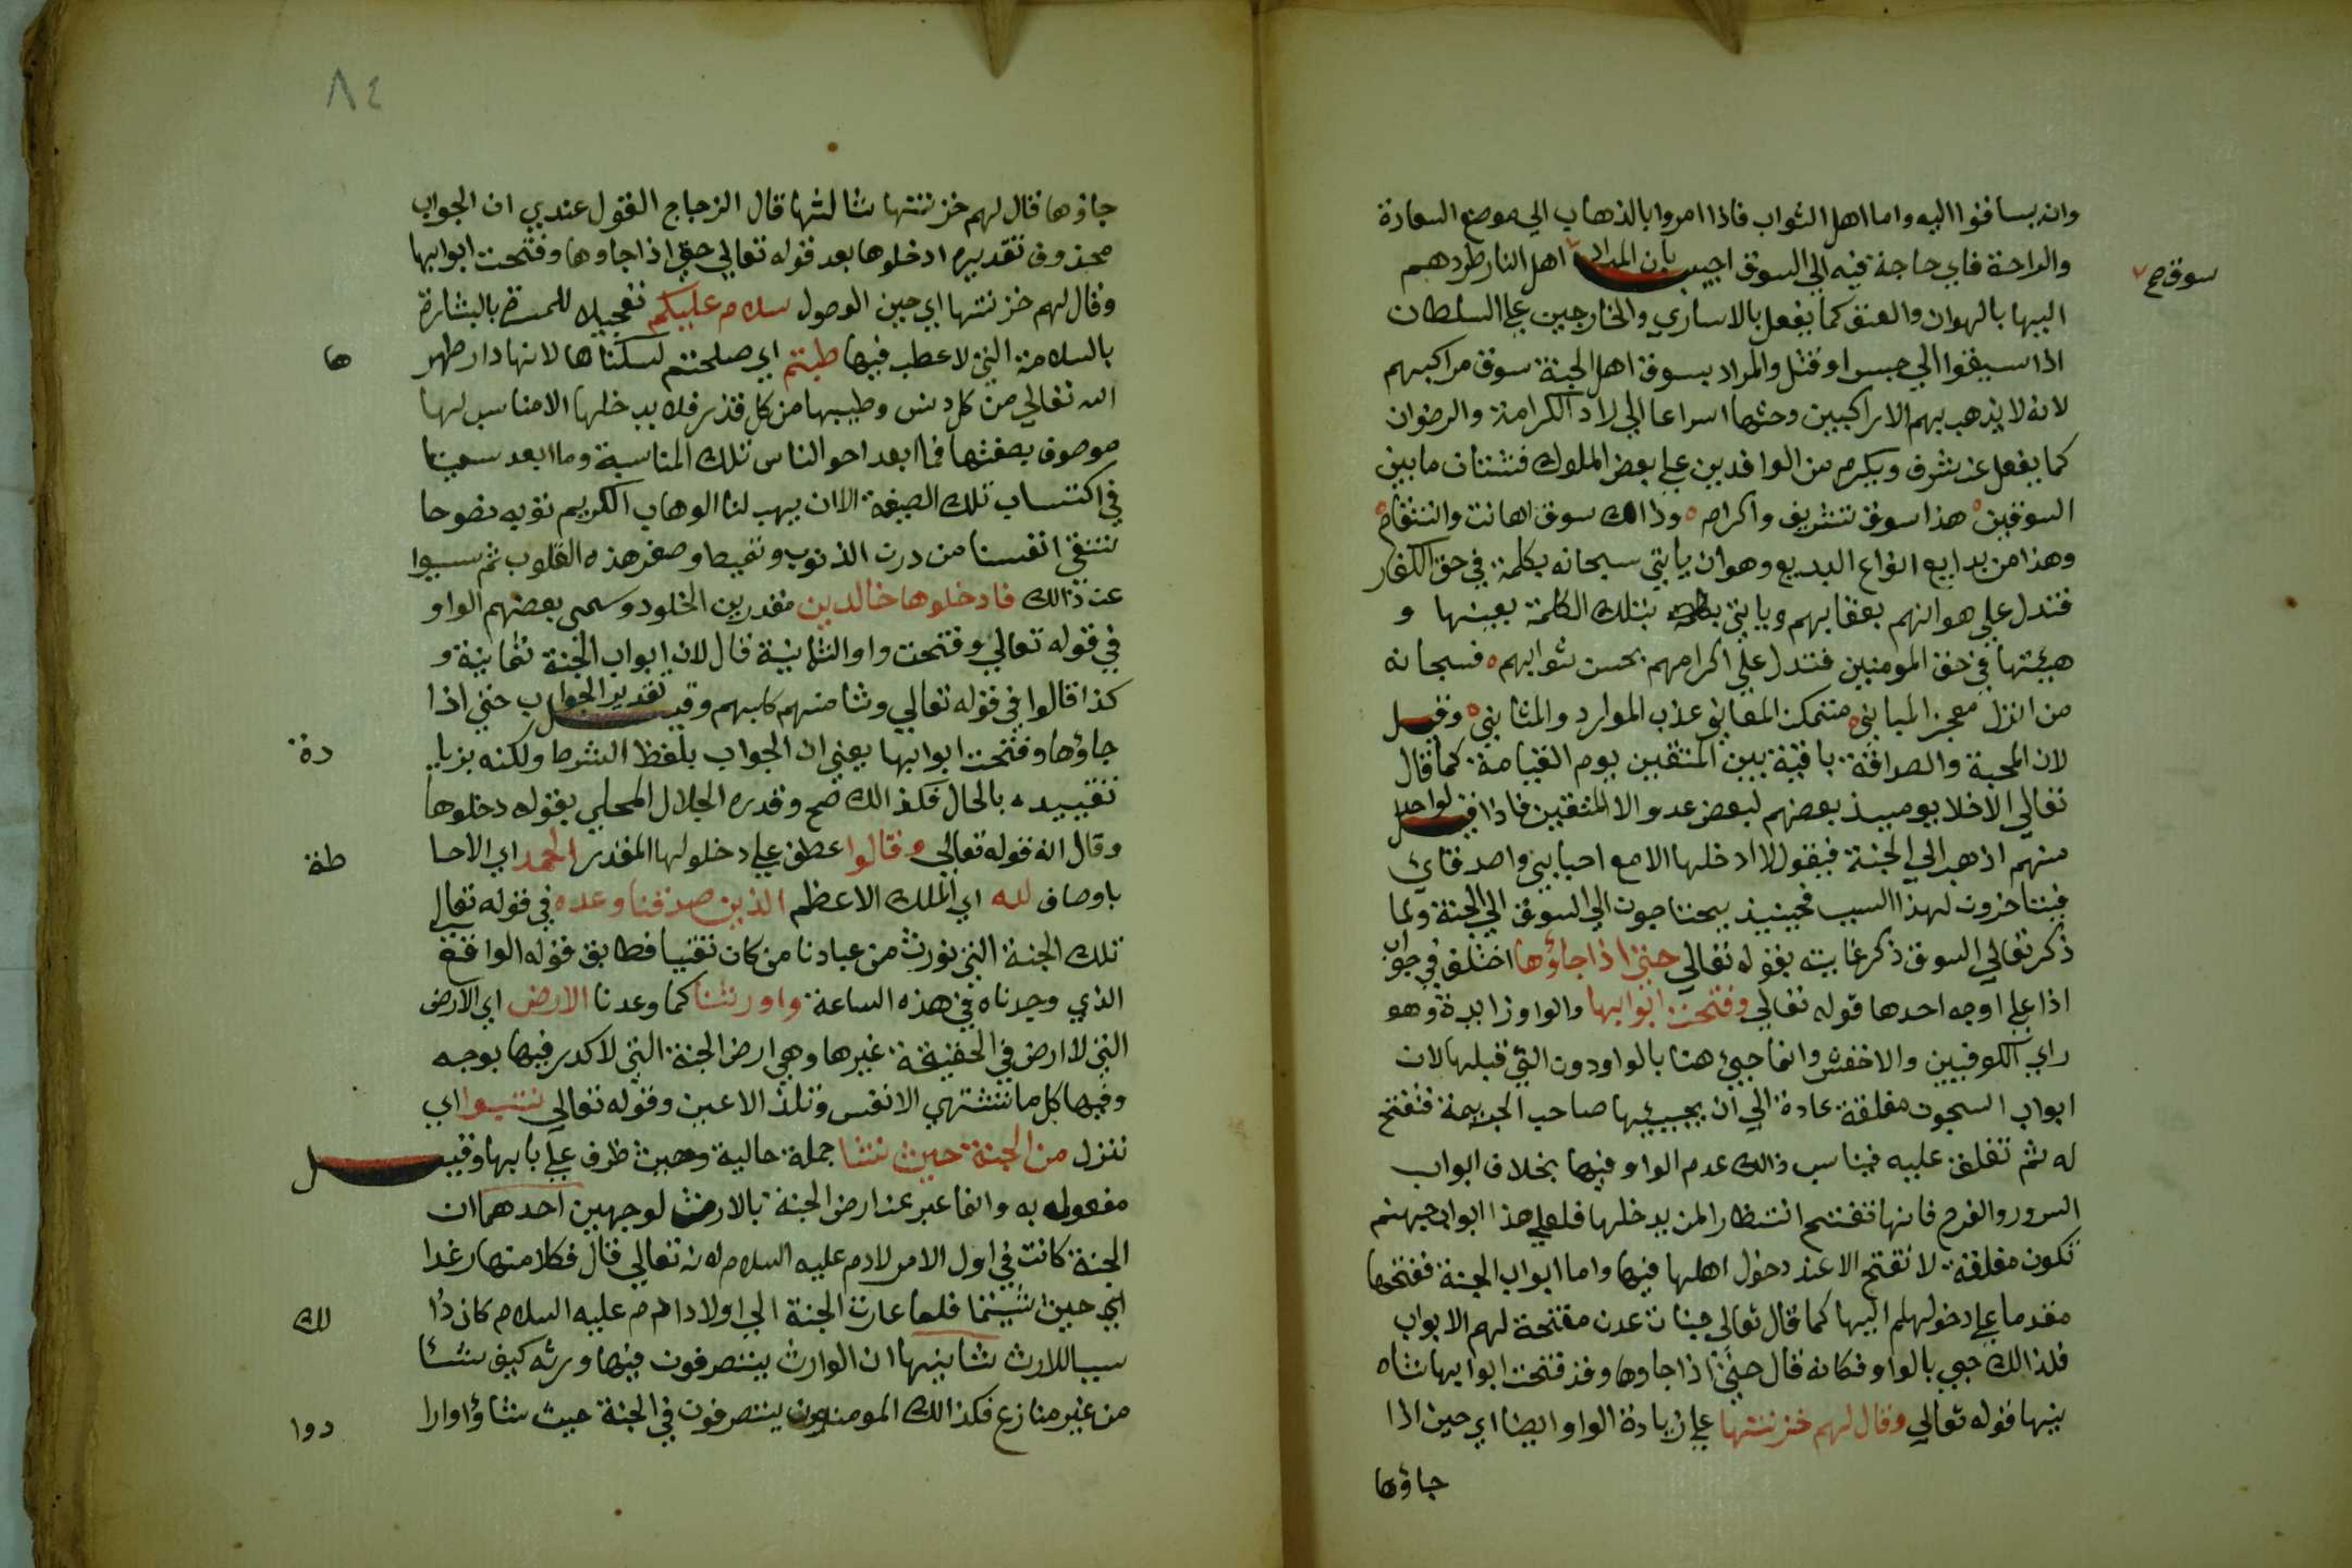 وانه يساقوا اليه واما اهل الثواب فاذا امروا بالذهاب الي موضع السعادة
والراحة فاي حاجة فيه الي السوق اجيب بان المراد اهل النار طردهم
سوق صح
اليها بالهوان والعنف كما يفعل بالاساري والخارجين علي السلطان
اذا سيقوا الي حبس او قتل والمراد بسوق اهل الجنة سوق مراكبهم
لانه لا يذهب بهم الا راكبين وحثها اسراعا الي دار الكرامة والرضوان
كما يفعل عن يشرف ويكرم من الوافدين علي بعض الملوك فشتان ما بين
السوقين هذا سوق تشريف واكرام وذالك سوق اهانت وانتقام
وهذا من بدايع انواع البديع وهو ان ياتي سبحانه بكلمة في حق الكفار
فتدل علي هوانهم بعقابهم وياتي بتلك الكلمة بعينها و
هيئتها في حق المومنين فتدل علي اكرامهم بحسن ثوابهم فسبحانه
من انزل معجز المباني متمكن المعاني عذب الموارد والمثاني وقيل
لان المحبة والصداقة باقية بين المتقين يوم القيامة كما قال
تعالي الاخلا يوميذ بعضهم لبعض عدو الا المتقين فاذا قيل لواحد
منهم اذهب الي الجنة فيقول لا ادخلها الا مع احبابي واصدقاي
فيتاخرون لهذا السبب فحينيذ يحتاجون الي السوق الي الجنة ولما
ذكر تعالي السوق ذكر غايته بقوله تعالي حتي اذا جاؤها اختلف في جواب
اذا علي اوجه احدها قوله تعالي وفتحت ابوابها والواو زايدة وهو
راي الكوفيين والاخفش وانما جيئ هنا بالواو دون التي قبلها لان
ابواب السجون مغلقة عادة الي ان يجيئها صاحب الجريمة فتفتح
له ثم تغلق عليه فيناسب ذالك عدم الواو فيها بخلاف ابواب
السرور والفرح فانها تفتح انتظارا لمن يدخلها فلعلي هذا ابواب جهنم
تكون مغلقة لا تفتح الا عند دخول اهلها فيها واما ابواب الجنة ففتحها
مقدما علي دخولهم اليها كما قال تعالي جنات عدن مفتحة لهم الابواب
فلذالك جيى بالواو فكانه قال حتي اذا جاوها وقد فتحت ابوابها ثاه
ينها قوله تعالي وقال لهم خزنتها علي زيادة الواو ايضا اي حين اذا
جاؤها
٨٤
جاؤها قال لهم خزنتها ثالثها قال الزجاج القول عندي ان الجواب
محذوف تقديره ادخلوها بعد قوله تعالي حتي اذا جاوها وفتحت ابوابها
وقال لهم خزنتها اي حين الوصول سلام عليكم تعجيلا للمسرة بالبشارة
بالسلامة التي لا عطب فيها طبتم اي صلحتم لسكناها لانها دار طهر ها
الله تعالي من كل دنس وطيبها من كل قذر فلا يدخلها الا مناسب لها
موصوف بصفتها فما ابعد احوالناس تلك المناسبة وما ابعد سعينا
في اكتساب تلك الصيغة الا ان يهب لنا الوهاب الكريم توبه نصوحا
تنقي انفسنا من درن الذنوب وتميط وضر هذه القلوب ثم سببوا
عن ذالك فادخلوها خالدين مقدرين الخلود وسمي بعضهم الواو
في قوله تعالي وفتحت واو الثمانية قال لان ابواب الجنة ثمانية و
كذا قالوا في قوله تعالي وثامنهم كلبهم وقيل تقدير الجواب حتي اذا
جاؤها وفتحت ابوابها يعني ان الجواب بلفظ الشرط ولكنه بزيا دة
تقييده بالحال فكذالك صح وقدره الجلال المحلي بقوله دخلوها
وقال انه قوله تعالي وقالوا عطف علي دخلوها المقدر الحمد اي الاحا طة
باوصاف لله اي الملك الاعظم الذين صدقنا وعده في قوله تعالي
تلك الجنة التي نورث من عبادنا من كان تقيا فطابق قوله الواقع
الذي وجدناه في هذه الساعة واورثنا كما وعدنا الارض اي الارض
التي لا ارض في الحقيقة غيرها وهي ارض الجنة التي لا كدر فيها بوجه
وفيها كل ما تشتهي الانفس وتلذ الاعين وقوله تعالي نتبوا اي
ننزل من الجنة حيث نشا جملة حالية وحيث ظرف علي بابها وقيل
مفعوله به وانما عبر عن ارض الجنة بالارض لوجهين احدهما ان
الجنة كانت في اول الامر لادم عليه السلام لانه تعالي قال فكلا منها رغدا
اي حيث شيتما فلما عادت الجنة الي اولاد ادم عليه السلام كان ذا لك
سببا للارث ثانيها ان الوارث يتصرفون فيها ورثه كيف شئا
من غير منازع فكذالك المومنون يتصرفون في الجنة حيث شاؤا وارا دوا